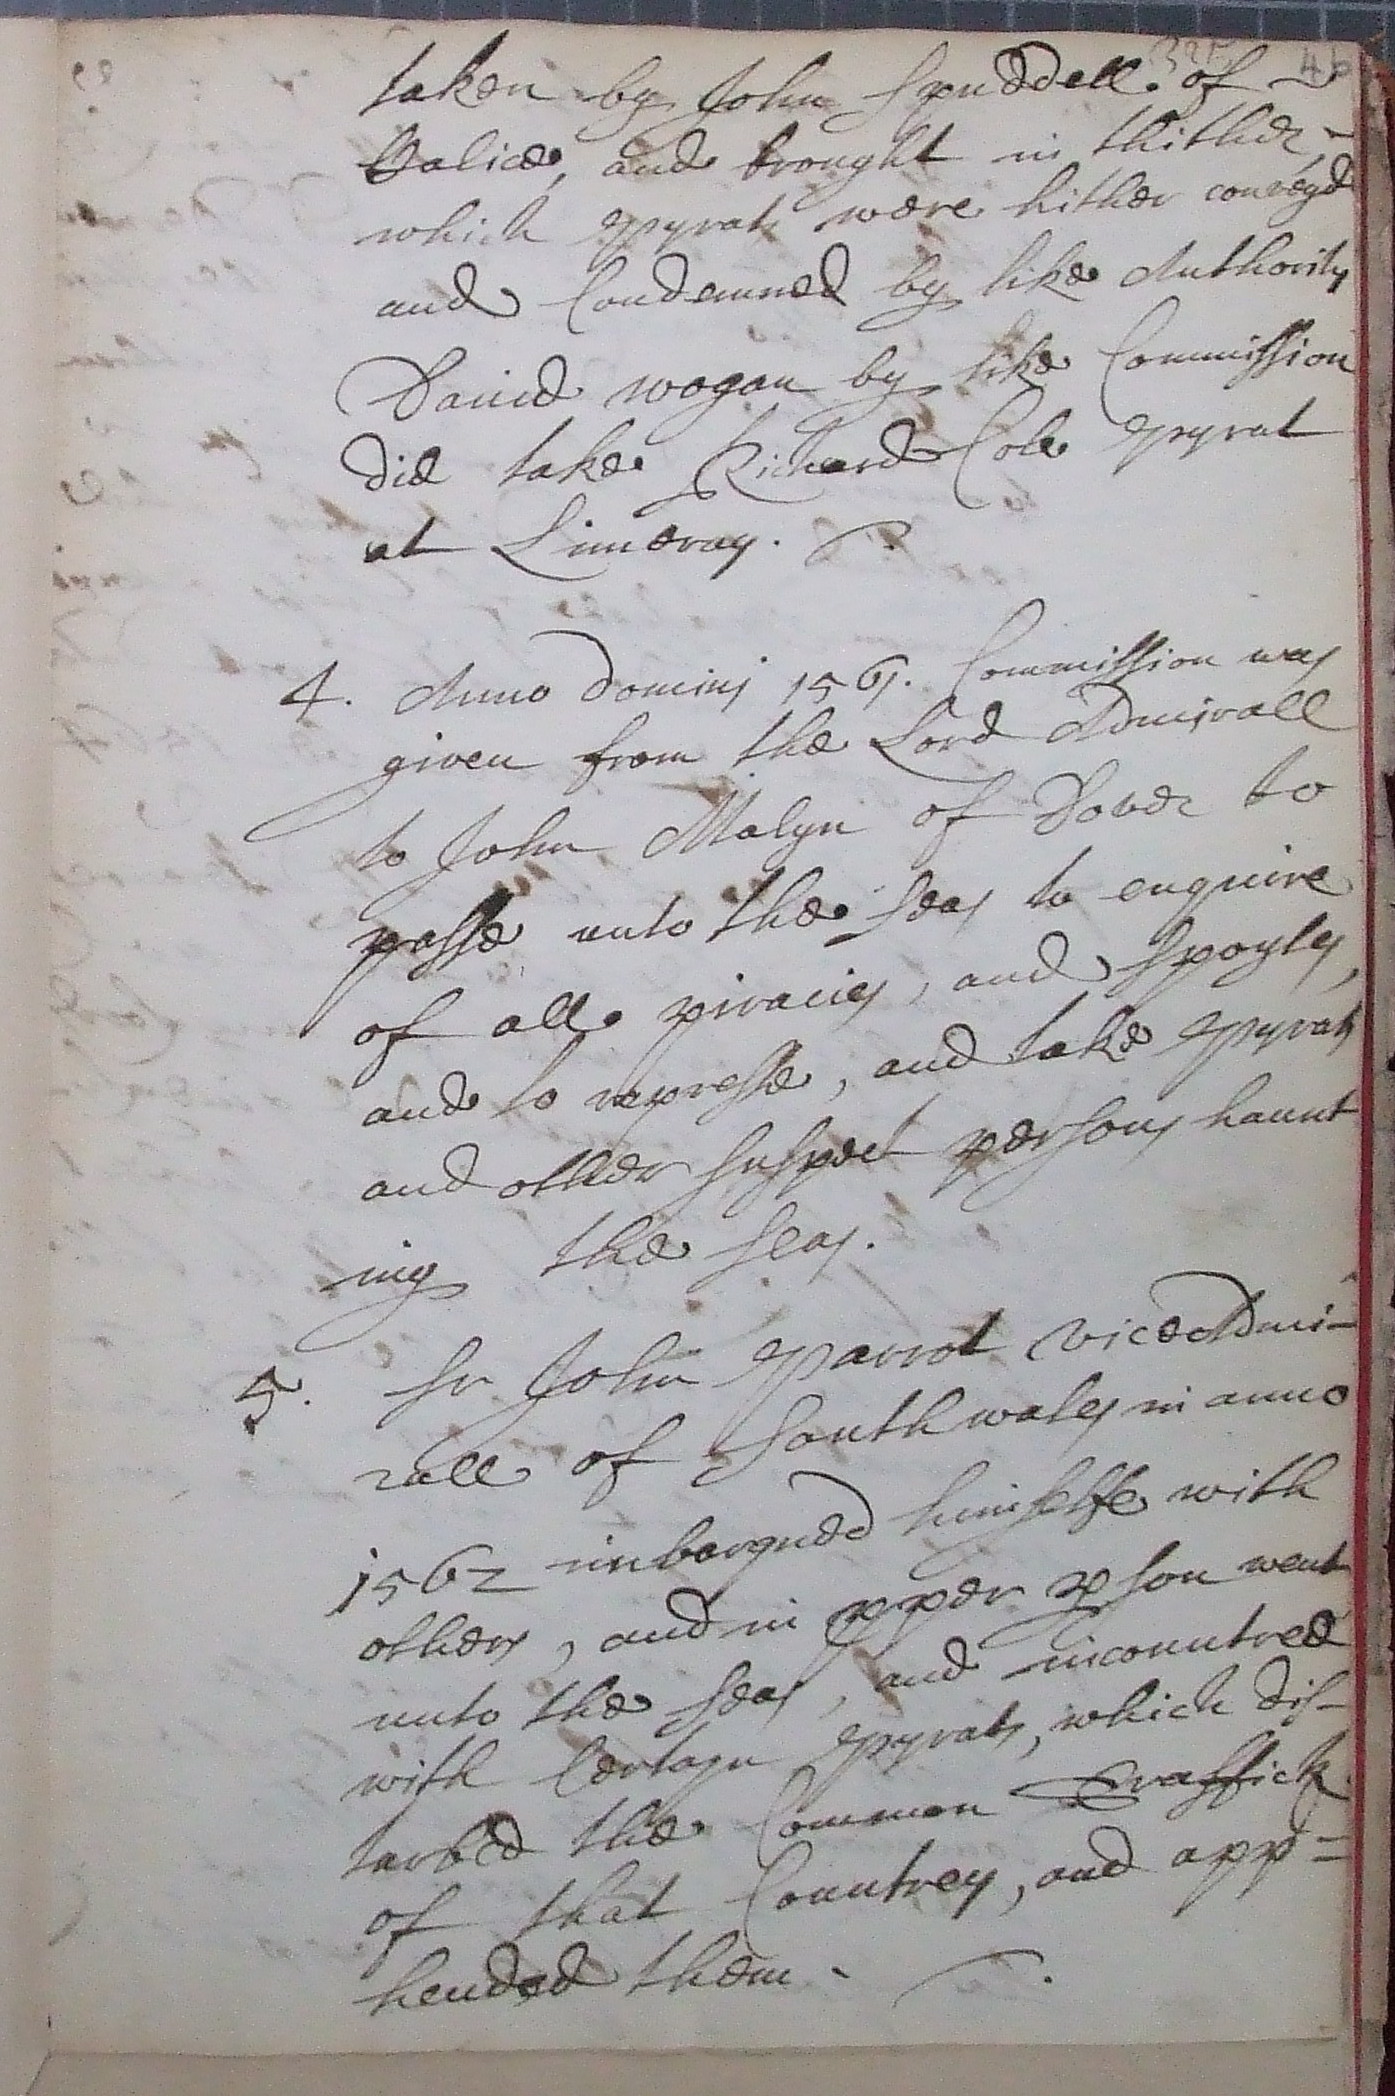 46
taken by John Spuddell of
Calice, and brought in thither,
which Pyrats were hither conveyd
and Condemned by like Authority
David wogan by like Commission
did take Richard Cole Pyrat
at Limeray.
4. Anno Dominj 1561. Commission was
given from the Lord Admirall
to John Malyn of Dover to
passe unto the seas to enquire
of all piracies, and spoyles,
and to represse, and take Pyrats
and other suspect persons haunt
ing the seas.
5. Sr John Parrot viceAdmi-
rall of Southwales in anno
1562 imbarqued himselfe with
others, and in pper pson went
unto the seas, and incountred
with Certayn Pyrats, which dis-
turbed the Common Traffick
of that Countrey, and app=
hended them.